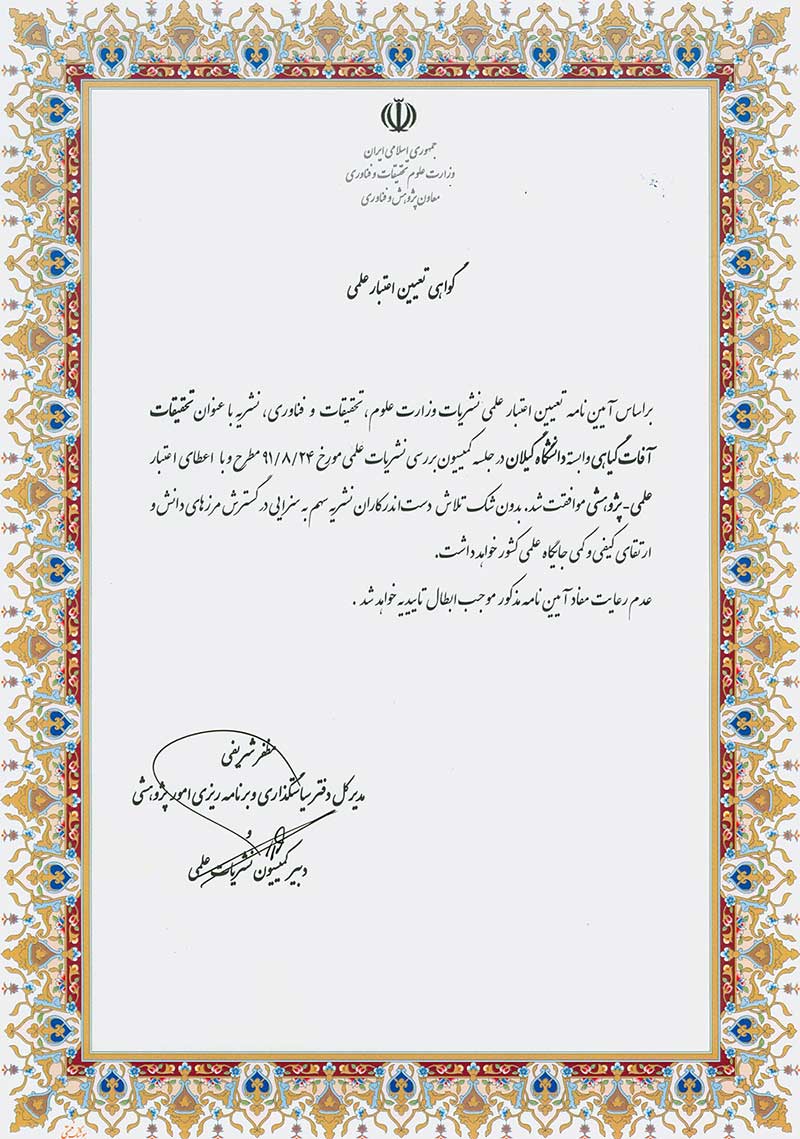 جمهوری اسلامی ایران
وزارت علوم تحقیقات و فناوری
معاون پژوهش و فناوری
گواهی تعیین اعتبار علمی
براساس آیین نامه تعیین اعتبار علمی نشریات وزارت علوم، تحقیقات و فناوری، نشریه با عنوان تحقیقات
آفات گیاهی وابسته دانشگاه گیلان در جلسه کمیسیون بررسی نشریات علمی مورخ ۹۱/۸/۲۴ مطرح و با اعطای اعتبار
علمی-پژوهشی موافقت شد. بدون شک تلاش دست اندرکاران نشریه سهم به سزایی در گسترش مرزهای دانش و
ارتقای کیفی و کمی جایگاه علمی کشور خواهد داشت.
عدم رعایت مفاد آیین نامه مذکور موجب ابطال تاییدیه خواهد شد .
مظفر شریفی
مدیر کل دفتر سیاستگذاری و برنامه ریزی امور پژوهشی
و
دبیر کمیسیون نشریات علمی